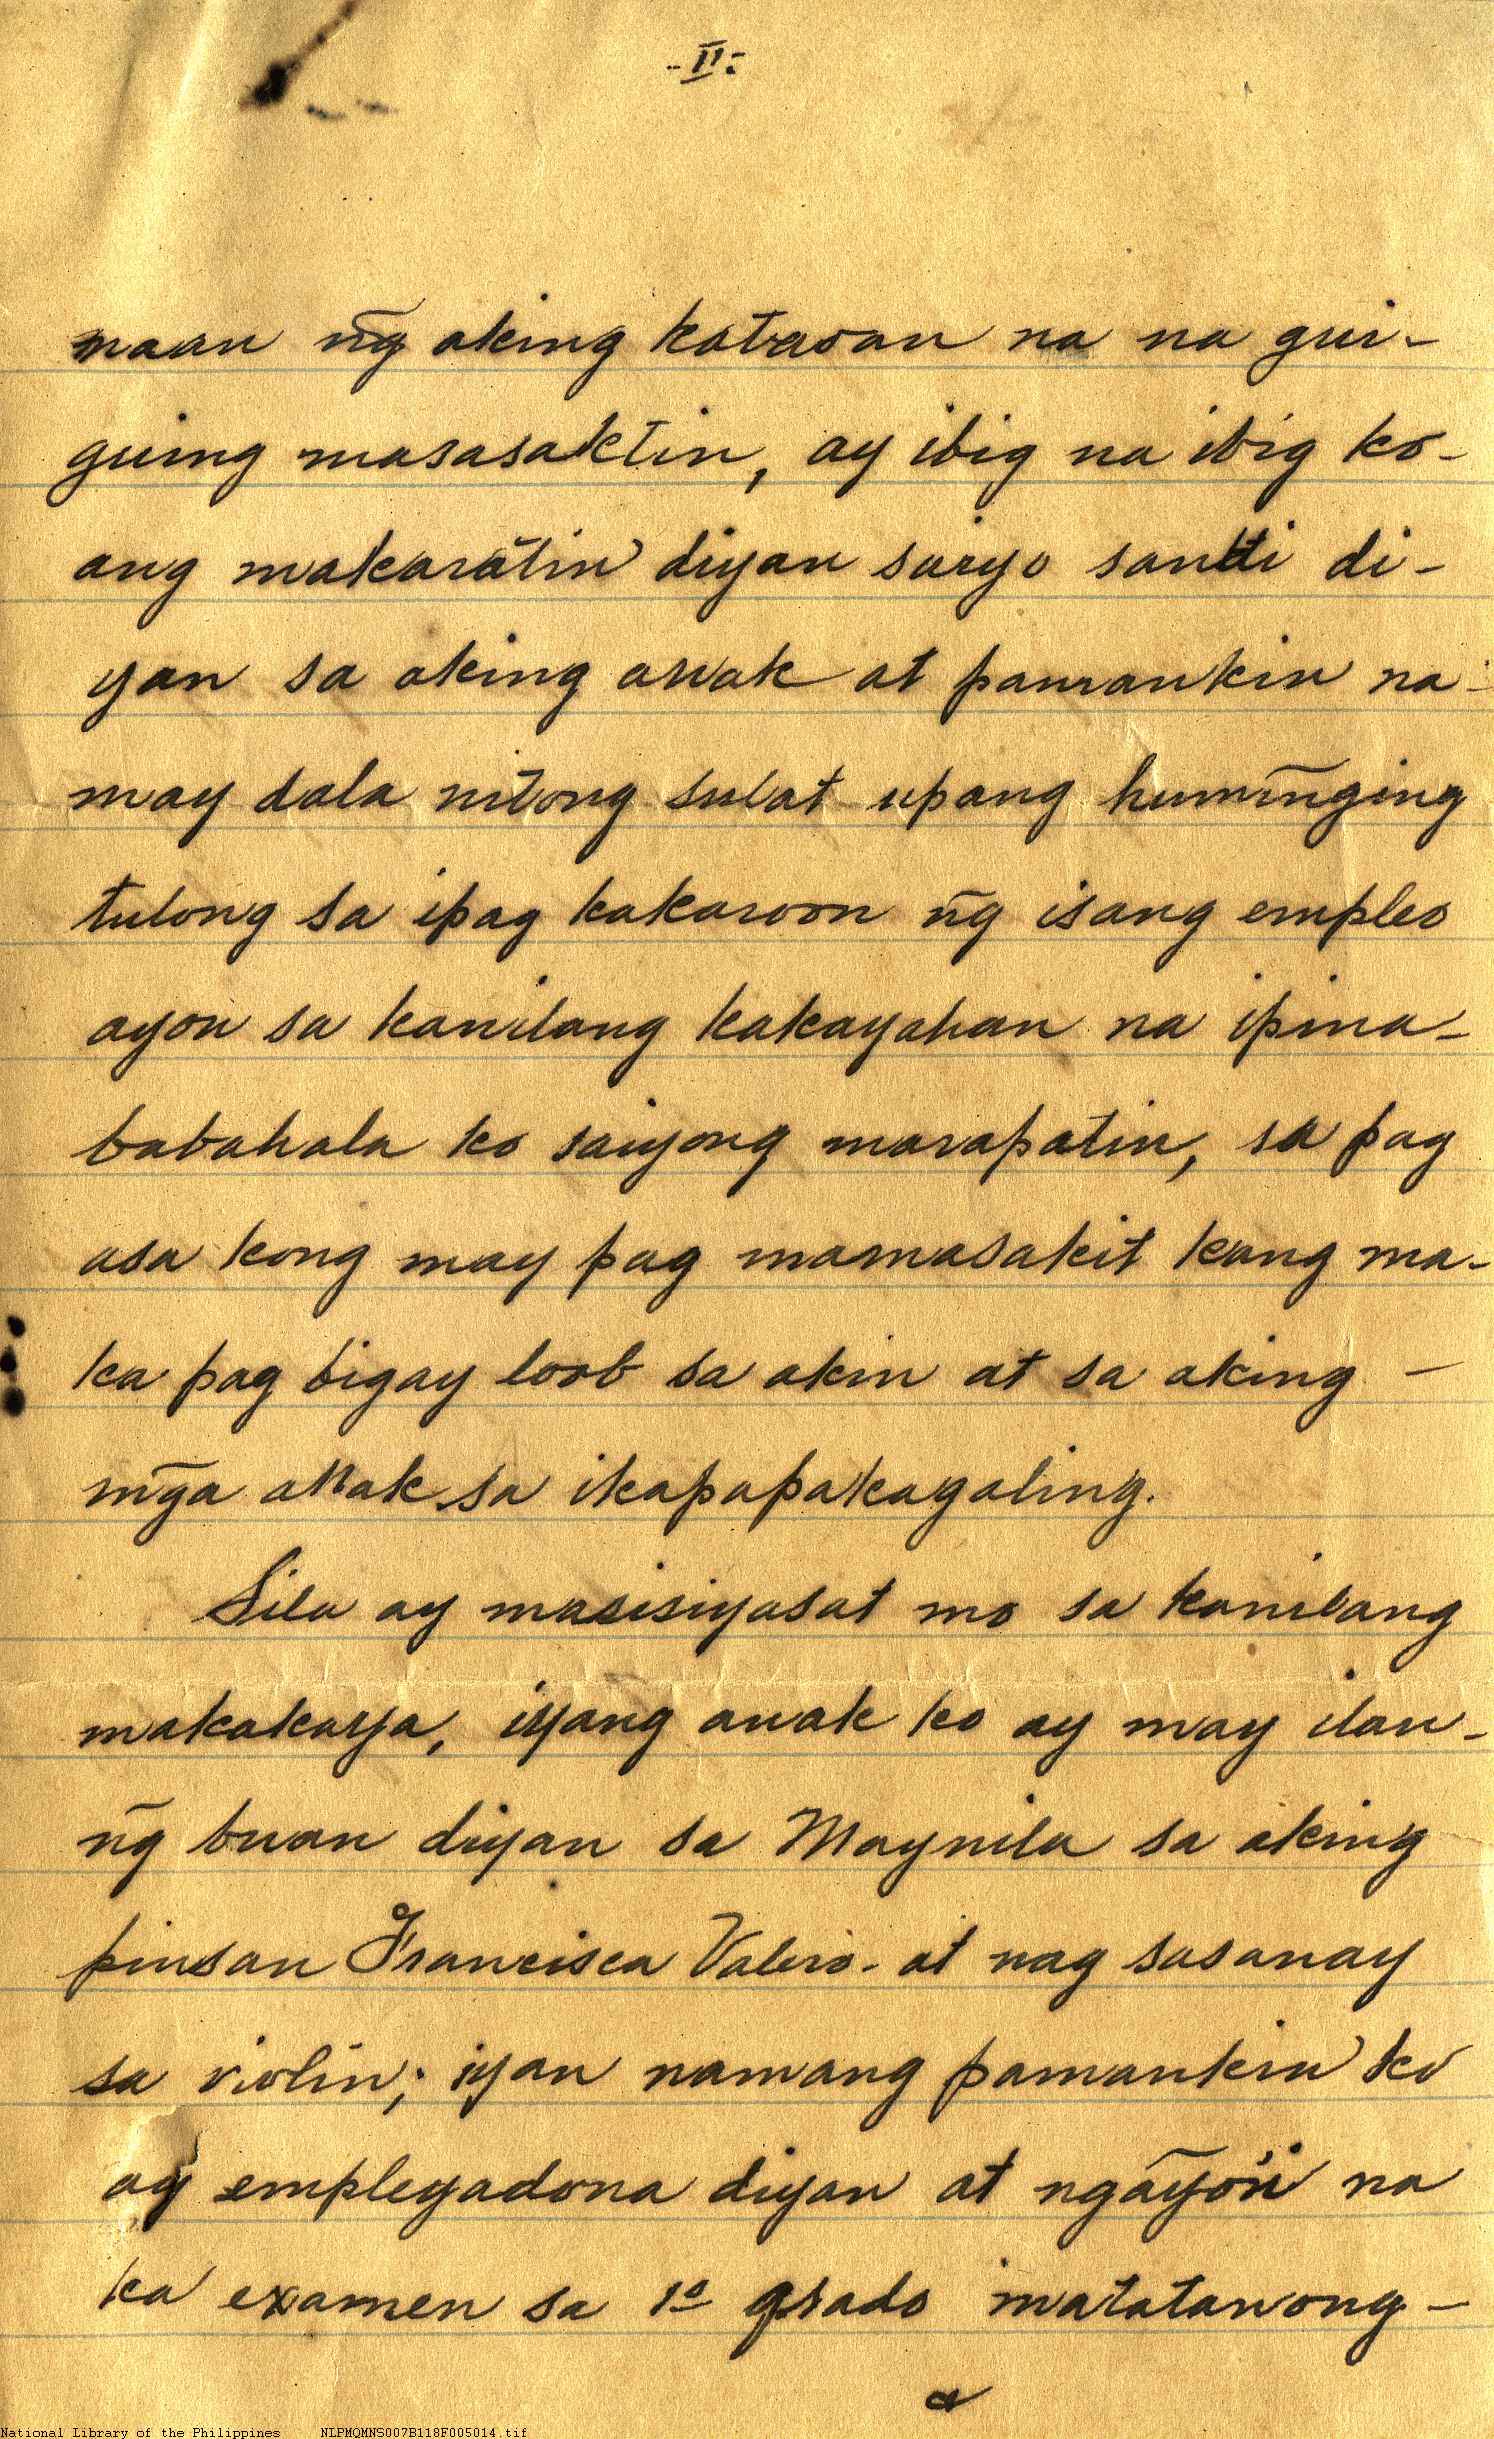 -II-
maan ñg aking kataoan na na gui-
guing masasaktin, ay ibig na ibig ko-
ang makaratin diyan saiyo sandi di-
yan sa aking anak at pamankin na-
may dala nitong sulat upang humin̄ging
tulong sa ipag kakaroon n̄g isang empleo
ayon sa kanilang kakayahan na ipina-
babahala ko saiyong marapatin, sa pag
asa kong may pag mamasakit kang ma-
ka pag bigay loob sa akin at sa aking -
mḡa anak sa ikapapakagaling.
Sila ay masisiyasat mo sa kanilang
makakaya, iyang anak ko ay may ilan-
n̄g buan diyan sa Maynila sa aking
pinsan Francisca Valero - at nag sasanay
sa violin; iyan namang pamankin ko
ay empleyadona diyan at ngāyon na
ka examen sa 1º grado matatanong-
a
National Library of the Philippines NLPMQMNS007B118F005014.tif